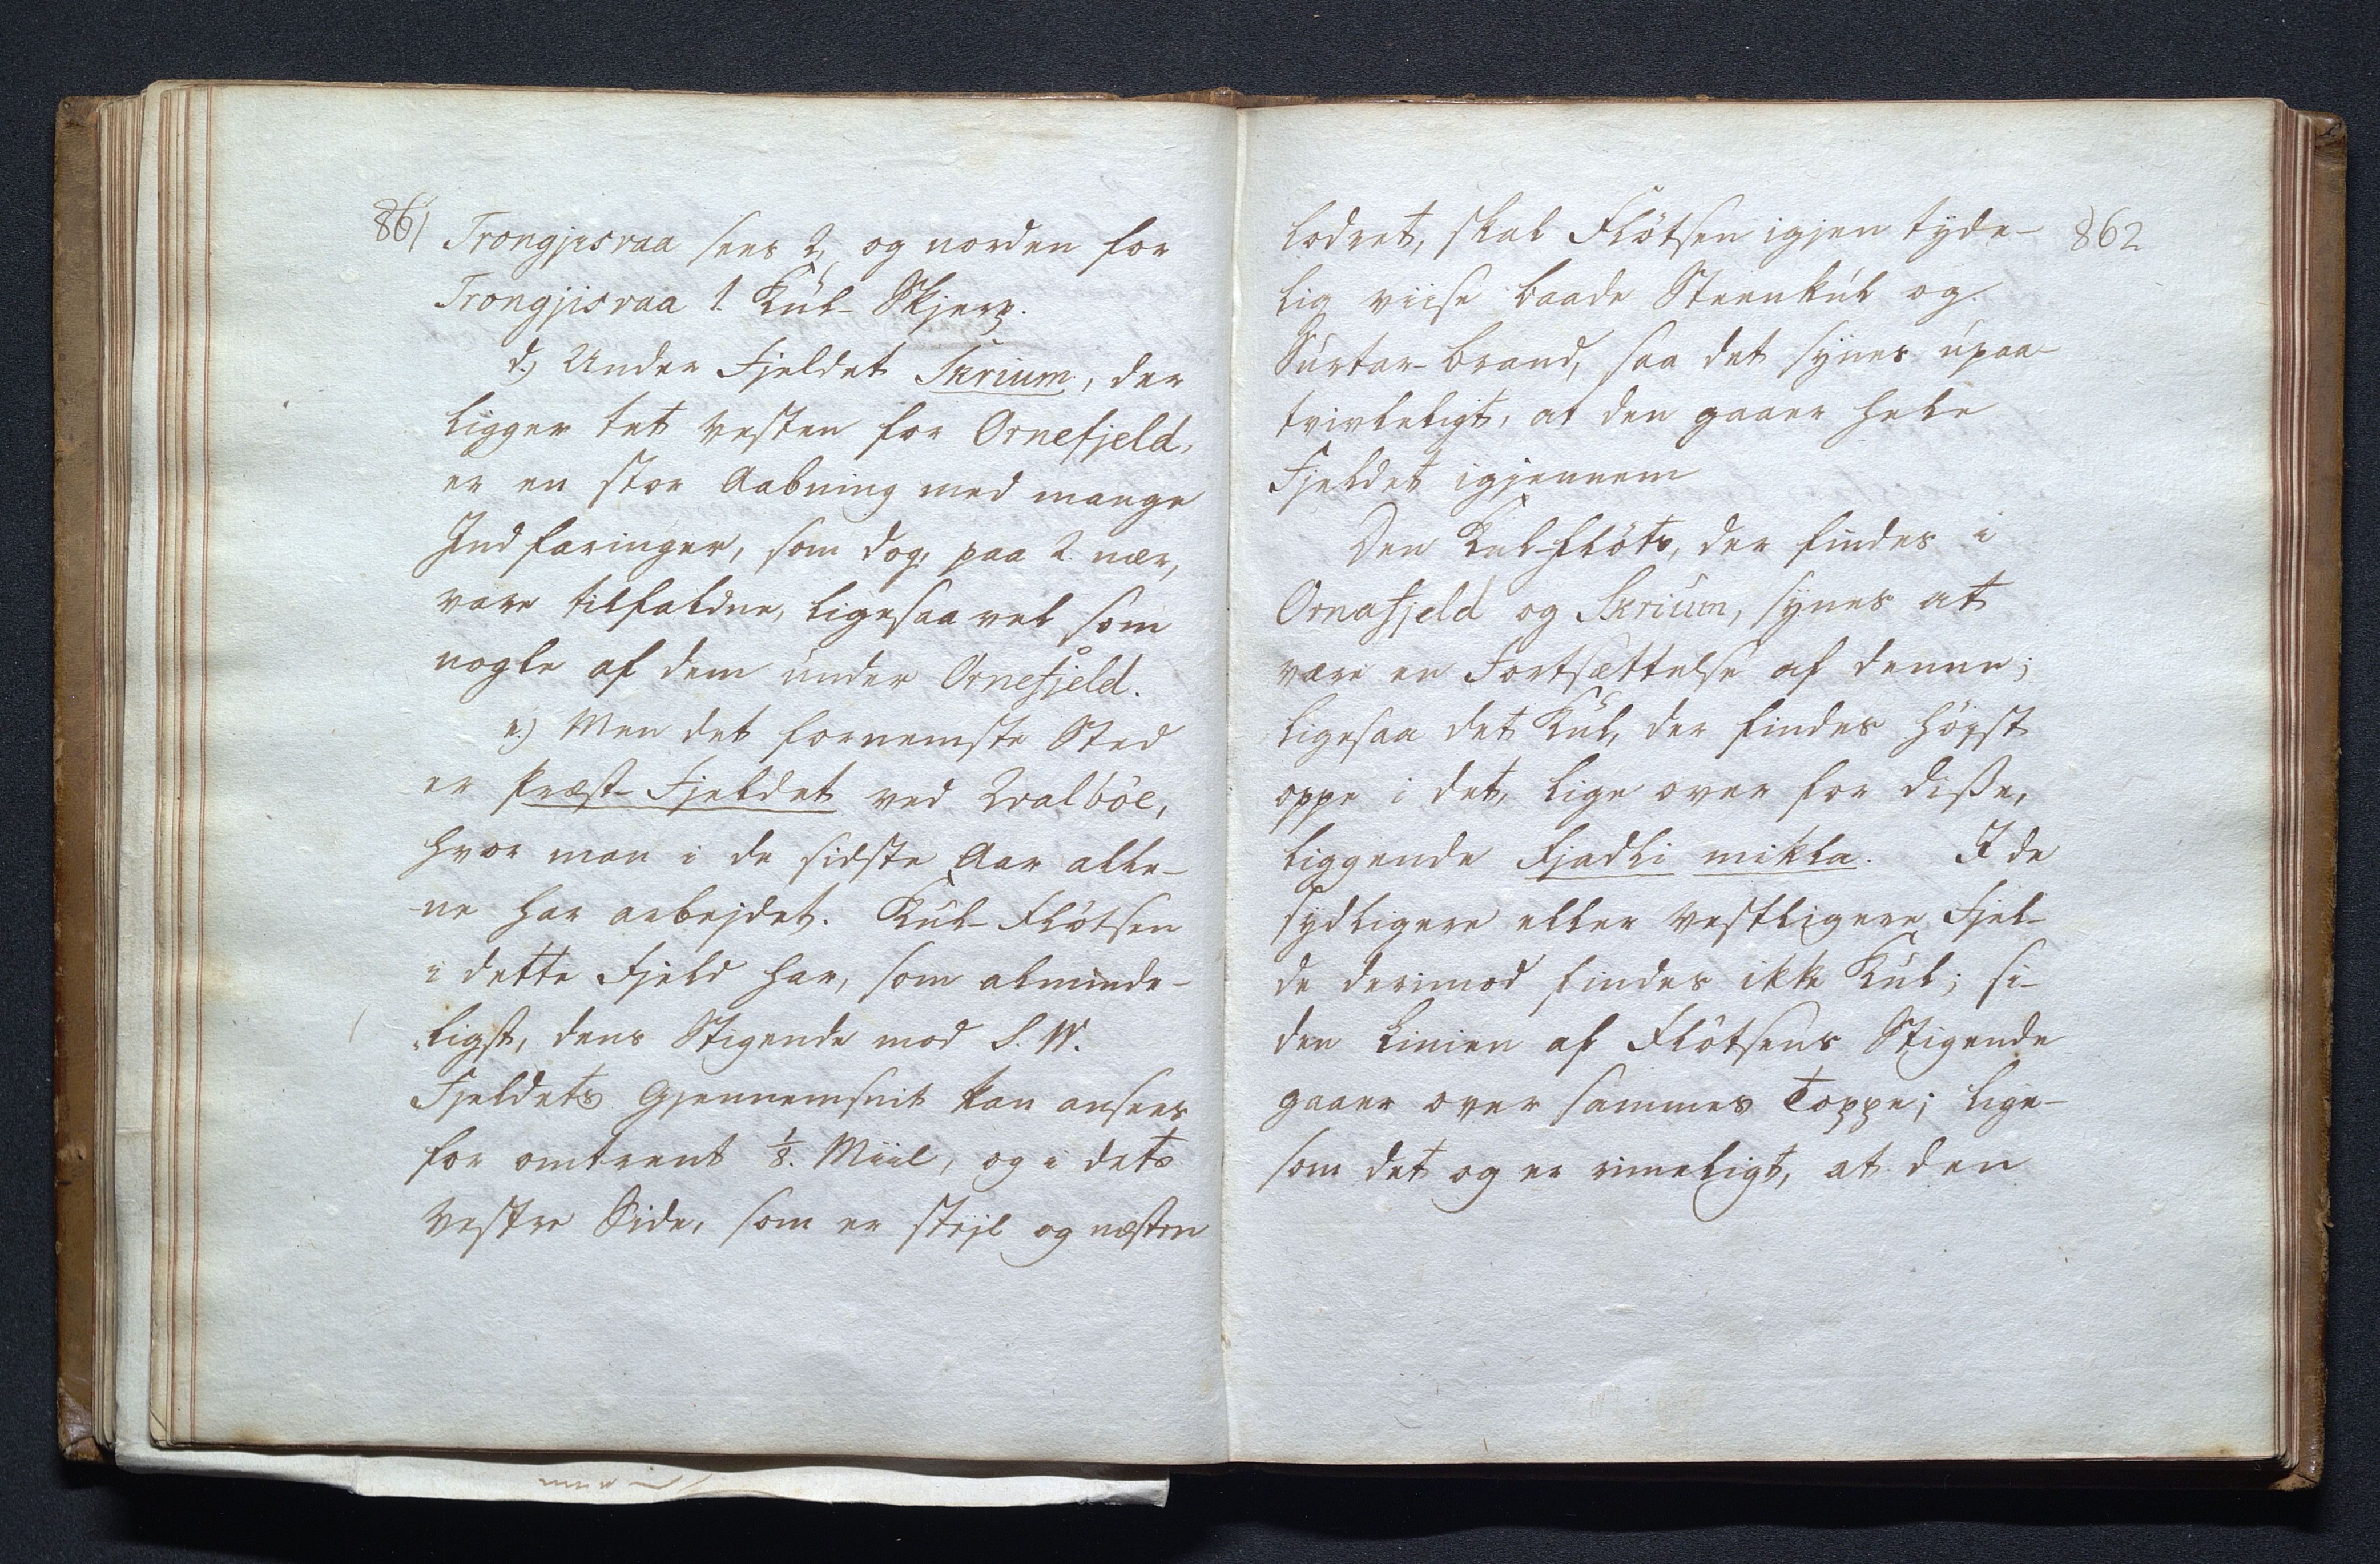 861
Trongjisvaa sees 2, og norden for
Trongjisvaa 1. Kul-Skjerp.
d.) Under Fjeldet Skrium, der
ligger tet vesten for Ornefjeld,
er en stor Aabning med mange
Indfaringer, som dog, paa 2 nær,
vare tilfaldne, ligesaavel som
nogle af dem under Ornefjeld.
e.) Men det fornemste Sted
er Præst-Fjeldet ved Qvalböe,
hvor man i de sidste Aar alle-
-ne har arbejdet. Kul-Flötsen
i dette Fjeld har, som alminde-
-ligst, dens Stigende mod S. W.
Fjeldets Gjennemsnit kan ansees
for omtrent 1/8. Miil, og i dets
vestre Side, som er stejl og næsten
862
lodret, skal Flötsen igjen tyde-
lig viise baade Steenkul og
Surtar-brand, saa det synes upaa-
tvivleligt, at den gaaer hele
Fjeldet igjennem
Den Kul-flöts, der findes i
Ornafjeld og Skrium, synes at
være en Fortsættelse af denne;
ligesaa det Kul, der findes höjst
oppe i det, lige over for disse,
liggende Fjadli mikla. I de
sydligere eller vestligere Fjel-
de derimod findes ikke Kul; si-
den Linien af Flötsens Stigende
gaaer over sammes Toppe; lige-
som det og er rimeligt, at den